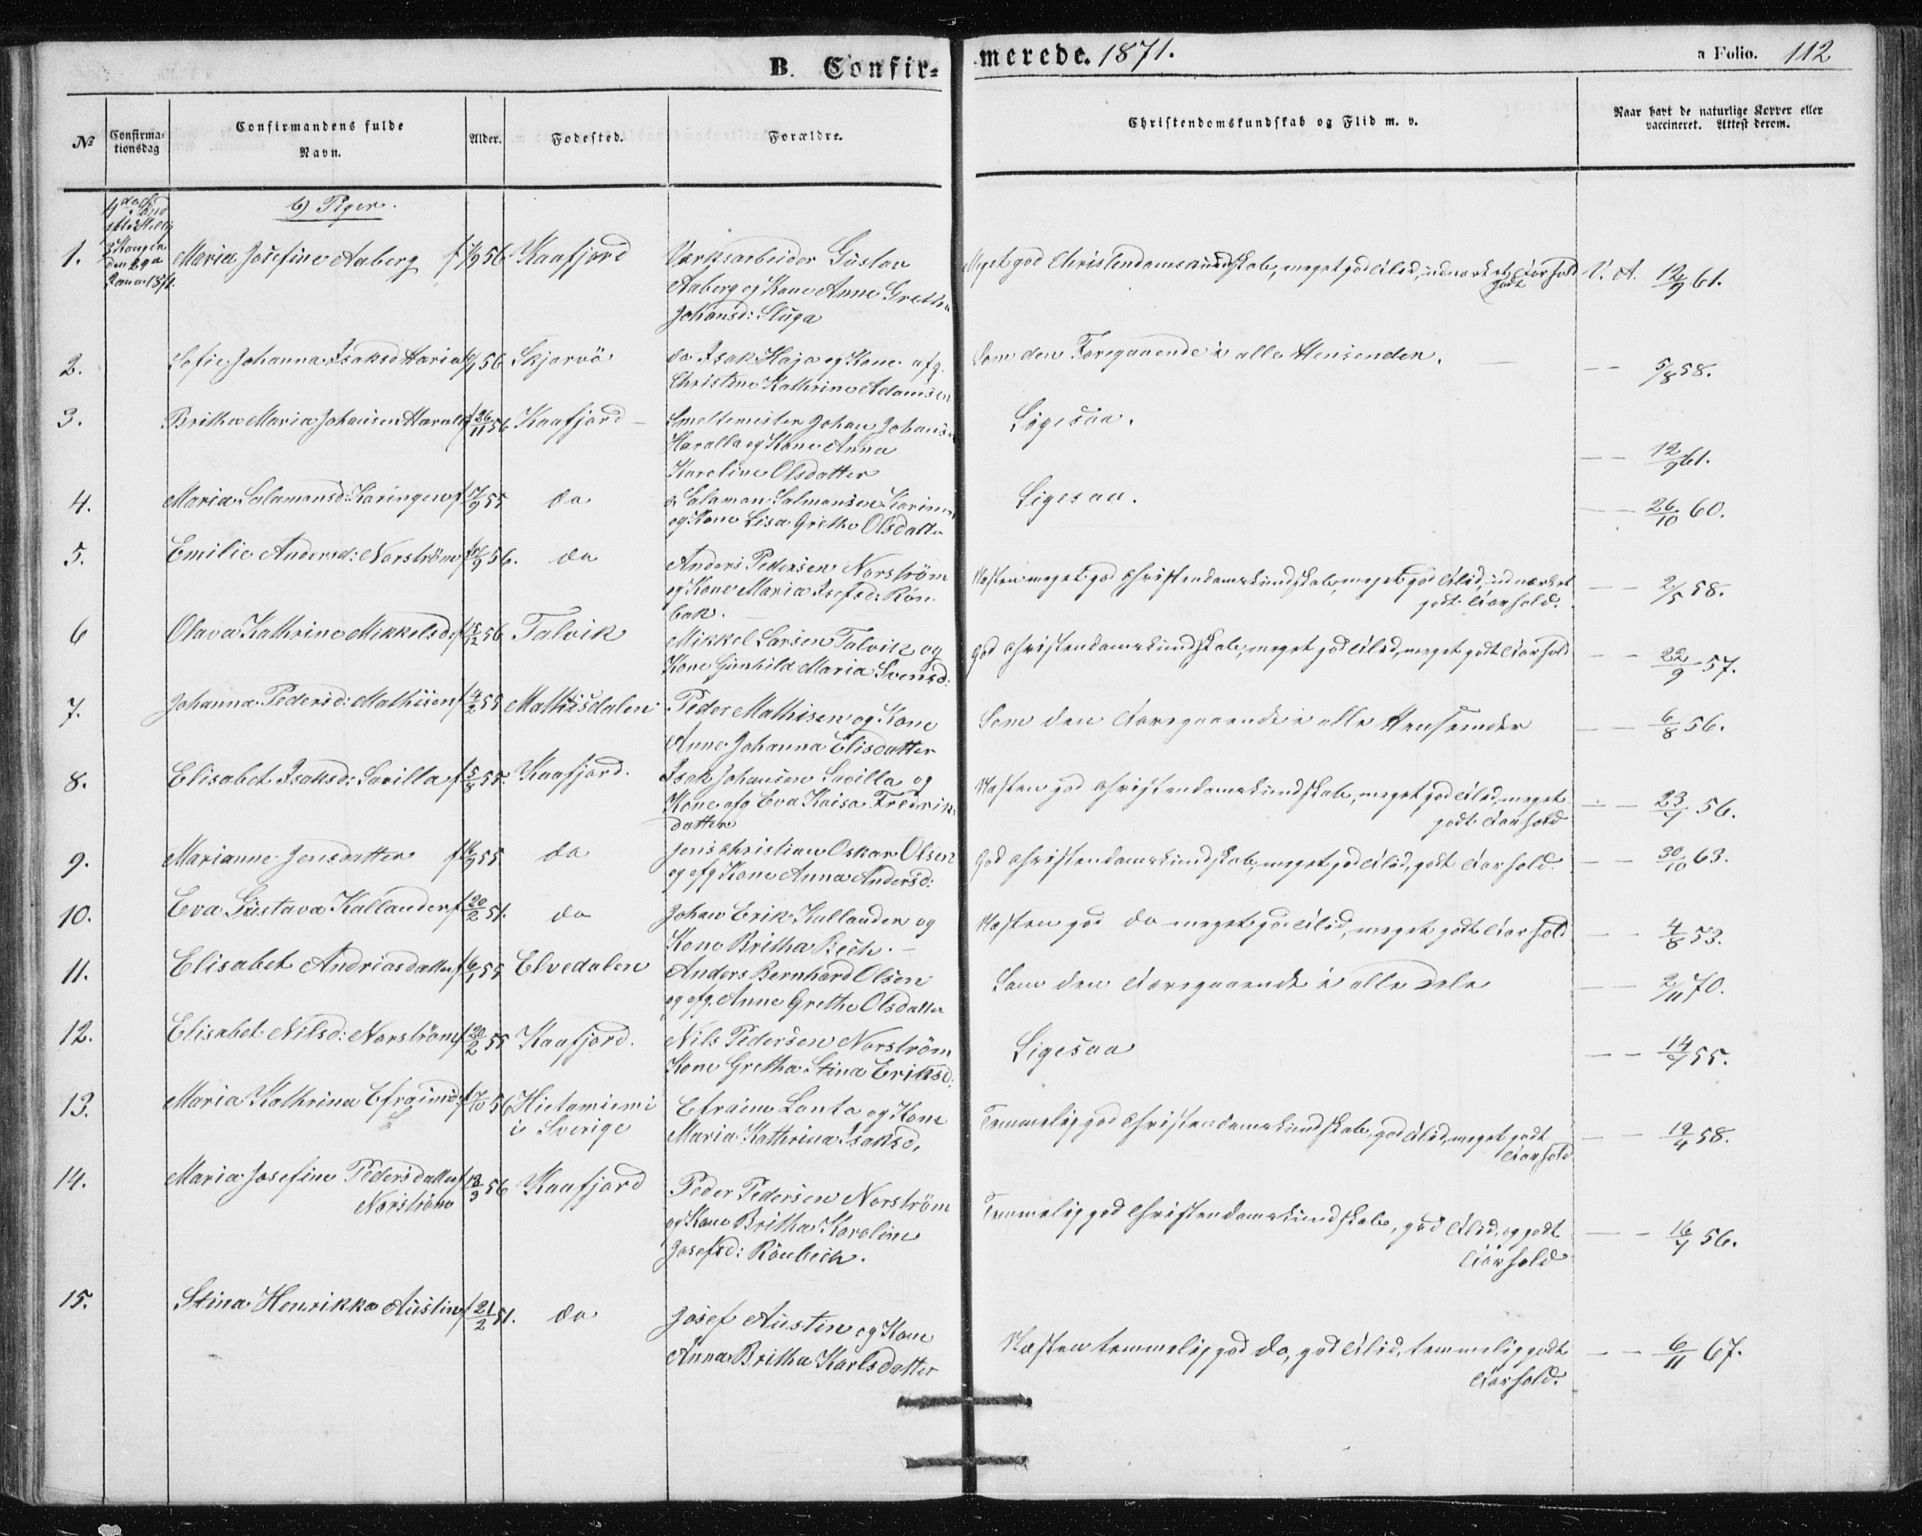 B. Confirmerede. 1871. a Folio. 112
№ Confirmationsdag Confirmandens fulde Navn. Alder. Fødested. Forældre. Christendomskundskab og Flid m. v. Naar havt de naturlige Kopper eller vaccineret. Attest derom.
b) Piger.
1. Maria Josefine Aaberg 56 Kaafjord Værksarbeider Gustav Meget god Christendomskundskab, meget god Flid, udmærket Forhold V. A. 12/9 61.
godt
Aaberg og Kone Anne Gretha
Johansd: Sluga
2. Sofie Johanna Isaksd 56 Skjervö do Isak Haja og Kone afg. Som den Foregaaende i alle Henseender. — — 5/8 58.
Christine Kathrine Adamsen
3. Britha Maria Johansen f 26/11 56 Kaafjord — Smeltemester Johan Johansen Ligesaa. — — 12/9 61.
og Kone Anna
Karoline Olsdatter
4. Maria Salamonsd: 55 do Salamon Salmonsen Ligesaa. — — 26/10 60.
og Kone Lisa Gretha Olsdatter
5. Emilie Andersd: Norström 56. do Anders Pedersen Norström Næsten meget god Christendomskundskab, meget god Flid, udmærket — — 2/5 58.
og Kone Maria Josefsd: Rön- godt Forhold.
bak.
6 Olava Kathrine Mikkelsd: 56 Talvik Mikkel Larsen Talvik og God Christendomskundskab, meget god Flid, meget godt Forhold — — 22/9 57.
Kone Gunhild Maria Svensd:
7. Johanna Pedersd: Mathisen f 4/2 55 Mathisdalen Peder Mathisen og Kone Som den Foregaaende i alle Henseender — — 6/8 56.
Anne Johanna Elisdatter
8. Elisabet Isaksd: Savilla f 5/8 55. Kaafjord. Isak Johansen Savilla og Næsten god Christendomskundskab, meget god Flid, meget — — 23/7 56.
Kone afg Eva Kaisa Fredrik- godt Forhold
datter
9. Marianne Jensdatter 55 do Jens Christian Oskar Olsen God Christendomskundskab, meget god Flid, godt Forhold. — — 30/10 63.
og afg Kone Anna Andersd:
10. Eva Gustava Kallander f 20/2 51. do Johan Erik Kallander og Næsten god do meget god Flid, meget godt Forhold — — 4/8 53.
Kone Britha Bech. —
11. Elisabet Andriasdatter 55 Elvedalen Anders Bernhard Olsen Som den Foregaaende i alle Dele — — 2/11 70.
og afg. Anne Gretha Olsdatter
12. Elisabet Nilsd: Norström f 20/2 55 Kaafjord. Nils Pedersen Norström Ligesaa — — 14/7 55.
Kone Gretha Stina Eriksd.
13. Maria Kathrina Efraimsd: 56 Hietaniemi Efraim Lanto og Kone Temmelig god Christendomskundskab, god Flid, meget godt — — 19/4 58.
i Sverige Maria Kathrina Isaksd. Forhold
14. Maria Josefine Pedersdatter f 18/3 56 Kaafjord Peder Pedersen Norström Temmelig god Christendomskundskab, god Flid, og godt — — 16/7 56.
Norström og Kone Britha Karoline Forhold
Josefsd: Rönbech.
15. Stina Henrikka Austin f 21/2 51. do Josef Austin og Kone Næsten temmelig god do, god Flid, temmelig godt — — 6/11 67.
Anna Britha Karlsdatter Forhold.